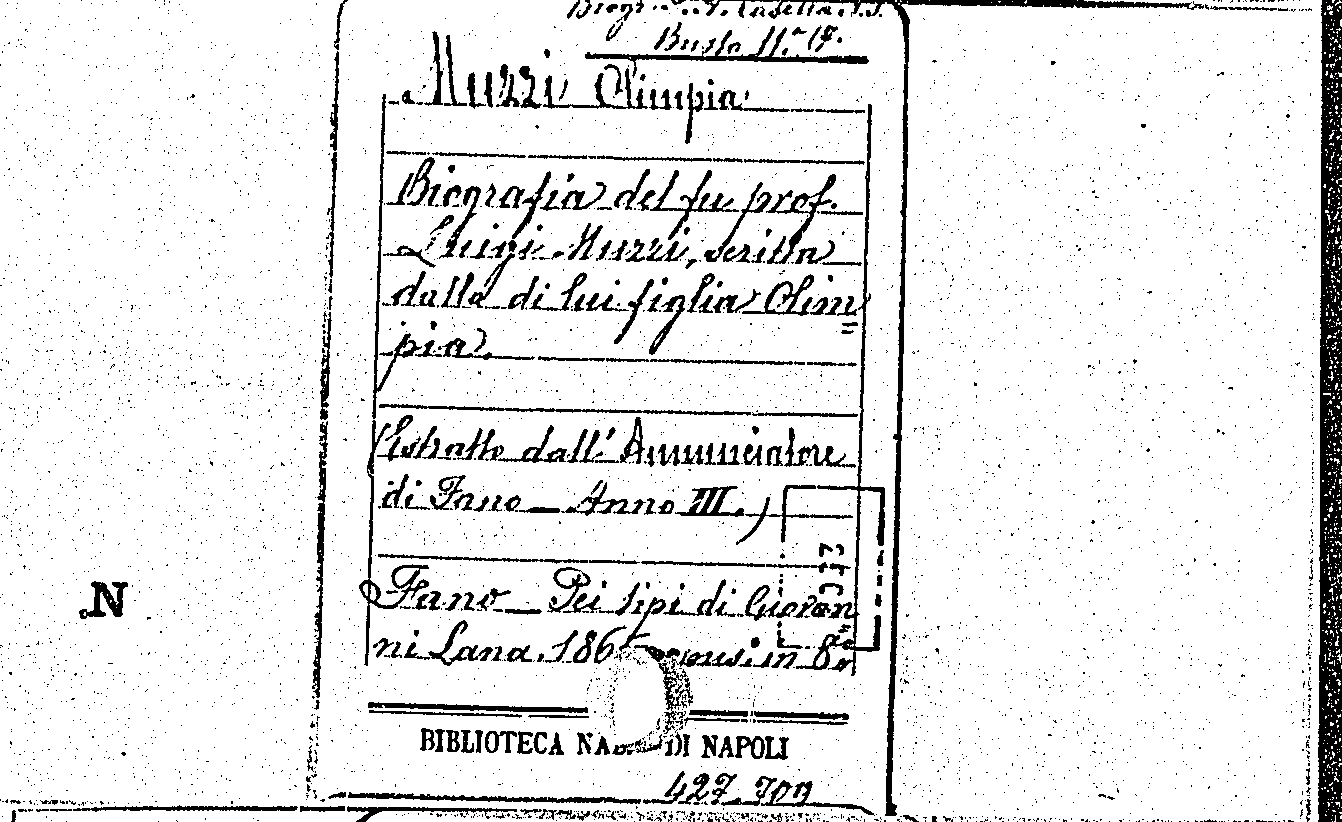 Biogr. Casella
Busta 11.ª 17.
Muzzi Olimpia
Biografia del fu prof.
Luigi Muzzi, scritta
dalla di lui figlia Olim=
pia.
(Estratto dall' Annunciatore
di Fano — Anno III.)
Fano — Pei tipi di Giovan
ni Lana. 186 in 8º
BIBLIOTECA DI NAPOLI
427.709
N